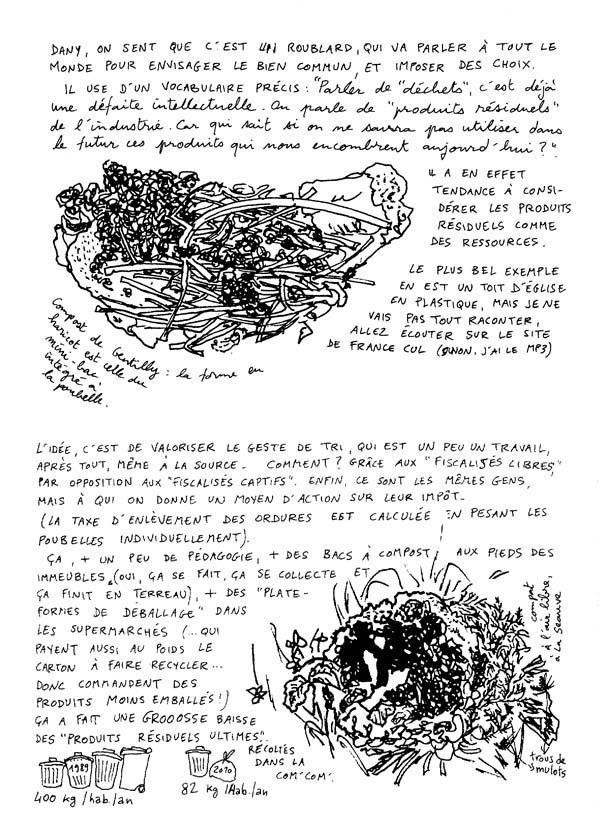 DANY, ON SENT QUE C'EST UN ROUBLARD, QUI VA PARLER À TOUT LE
MONDE POUR ENVISAGER LE BIEN COMMUN, ET IMPOSER DES CHOIX.
IL USE D'UN VOCABULAIRE PRÉCIS : "Parler de "déchets", c'est déjà
une défaite intellectuelle. On parle de "produits résiduels"
de l'industrie. Car qui sait si on ne saura pas utiliser dans
le futur ces produits qui nous encombrent aujourd'hui ?".
IL A EN EFFET
TENDANCE À CONSI-
DÉRER LES PRODUITS
RÉSIDUELS COMME
DES RESSOURCES.
LE PLUS BEL EXEMPLE
EN EST UN TOIT D'ÉGLISE
EN PLASTIQUE, MAIS JE NE
VAIS PAS TOUT RACONTER,
ALLEZ ÉCOUTER SUR LE SITE
DE FRANCE CUL (SINON, J'AI LE MP3)
Compost de Gentilly : la forme en
haricot est celle du
mini-bac
intégré à
la poubelle.
L'IDÉE, C'EST DE VALORISER LE GESTE DE TRI, QUI EST UN PEU UN TRAVAIL,
APRÈS TOUT, MÊME À LA SOURCE. COMMENT ? GRÂCE AUX "FISCALISÉS LIBRES,"
PAR OPPOSITION AUX "FISCALISÉS CAPTIFS". ENFIN, CE SONT LES MÊMES GENS,
MAIS À QUI ON DONNE UN MOYEN D'ACTION SUR LEUR IMPÔT.
(LA TAXE D'ENLÈVEMENT DES ORDURES EST CALCULÉE EN PESANT LES
POUBELLES INDIVIDUELLEMENT).
ÇA, + UN PEU DE PÉDAGOGIE, + DES BACS À COMPOST AUX PIEDS DES
IMMEUBLES, (OUI, ÇA SE FAIT, ÇA SE COLLECTE ET
ÇA FINIT EN TERREAU), + DES "PLATE-
FORMES DE DÉBALLAGE" DANS
LES SUPERMARCHÉS (... QUI
PAYENT AUSSI AU POIDS LE
CARTON À FAIRE RECYCLER...
DONC COMMANDENT DES
PRODUITS MOINS EMBALLÉS !)
ÇA A FAIT UNE GROOOSSE BAISSE
DES "PRODUITS RÉSIDUELS ULTIMES".
RÉCOLTÉS
DANS LA
COM'COM'.
compost
à l'air libre,
à la Seauve
trous de
mulots
1989
400 kg /hab./an
2010
82 kg /hab./an